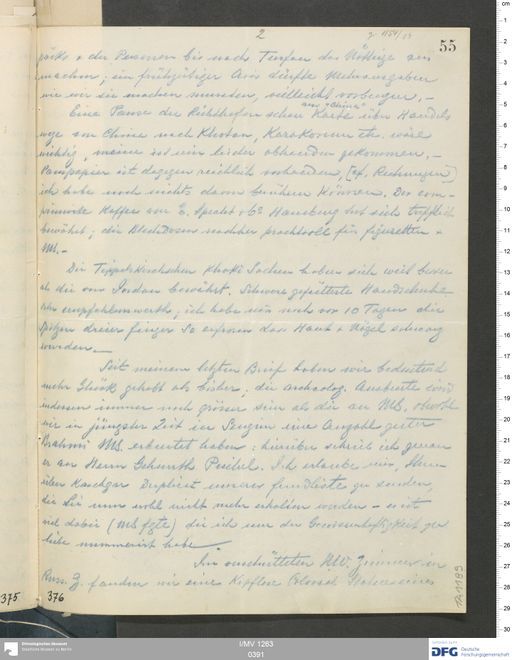 2
55
päcks & der Personen bis nach Turfan das Nöthige zu
machen; ein frühzeitiger Avis dürfte Mehrausgaben
wie wir sie machen mussten, vielleicht vorbeugen. –
aus "China"
Eine Pause der Richthofen schen Karte über Handels
wege von China nach Khotan, Karakorum etc. wäre
wichtig, meine ist mir leider abhanden gekommen. –
Pauspapier ist dagegen reichlich vorhanden, [cf. Rechnungen]
ich habe noch nichts davon benützen können. Der com-
primirte Kaffee von E. Specht & Co Hamburg hat sich trefflich
bewährt; die Blech Dosen nachher prachtvoll für figuretten &
MS. –
Die Tippelskirchschen Khaki Sachen haben sich weit besser
als die von Jordan bewährt. Schwere gefütterte Handschuhe
sehr empfehlenswerth; ich habe mir noch vor 10 Tagen die
Spitzen dreier finger so erfroren dass Haut & Nägel schwarz
wurden. –
Seit meinem letzten Brief haben wir bedeutend
mehr Glück gehabt als bisher; die archaeolog. Ausbeute wird
indessen immer noch grösser sein als die an MS, obwohl
wir in jüngster Zeit in Sengim eine Anzahl guter
Brahmi MS. erbeutet haben: hierüber schrieb ich genau
er an Herrn Gehmrth Pischel. Ich erlaube mir, Ihnen
über Kaschgar Duplicat unsrer fundliste zu senden,
die Sie nun wohl nicht mehr erhalten werden – es ist
viel dabei (MS fgte) die ich nur der Gewissenhaftigkeit zu
liebe nummerirt habe
Im verschütteten NW. Zimmer in
Ruin. Z. fanden wir eine Kopflose Colossal Statue eines
375
376
I/MV 1263
0391
Ethnologisches Museum
Staatliche Museen zu Berlin
DFG
Deutsche
Forschungsgemeinschaft